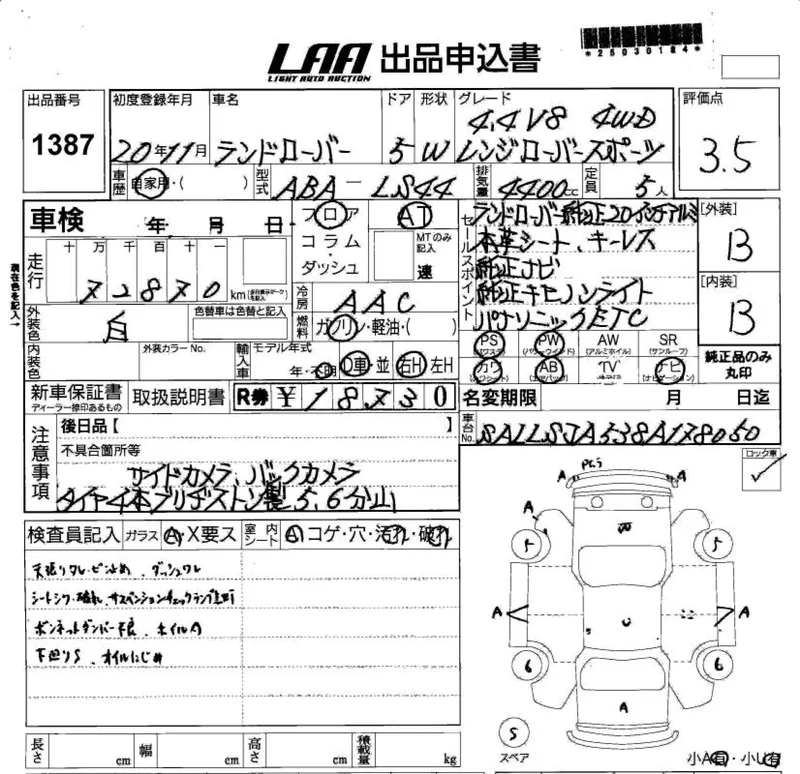 LAA 出品申込書
LIGHT AUTO AUCTION
*25030184*
出品番号
1387
初度登録年月
20年11月
車名
ランドローバー
ドア
5
形状
W
グレード
4.4V8 4WD
レンジローバースポーツ
評価点
3.5
車歴 自家用・( )
型式 ABA-LS44
排気量 4400cc
定員 5人
車検 年 月 日
フロア
コラム・
ダッシュ
AT
MTのみ記入
速
走行
十 万 千 百 十 一
72870 km
冷房 AAC
燃料 ガソリン・軽油・( )
現在色を記入→
外装色 白
色替車は色替と記入
内装色
外装カラーNo.
輸入車
モデル年式
年・不明
D車・並
右H 左H
セールスポイント
ランドローバー純正20インチアルミ
本革シート、キーレス
純正ナビ
純正キセノンライト
パナソニックETC
[外装]
B
[内装]
B
PS (パワステ)
PW (パワーウインド)
AW (アルミホイル)
SR (サンルーフ)
カワ (カワシート)
AB (エアバック)
TV
ナビ (ナビゲーション)
純正品のみ
丸印
新車保証書
ディーラー捺印あるもの
取扱説明書
R券 ¥18730
名変期限 月 日迄
注意事項
後日品【 】
不具合箇所等
サイドカメラ、バックカメラ
タイヤ4本ブリヂストン製5,6分山
車台No. SALLSJA538A178050
ロック車
検査員記入
ガラス A・X要ス
室内シート A コゲ・穴・汚れ・破れ
天張りタレ・ピン止め、ダッシュワレ
シートシワ・破れ、サスペンションチェックランプ点灯
ボンネットダンパー不良、ホイルA
下廻りS、オイルにじみ
A A
A
5 5
W
A A
U
6 6
A
S
スペア
小A有・小U有
長さ cm
幅 cm
高さ cm
積載量 kg